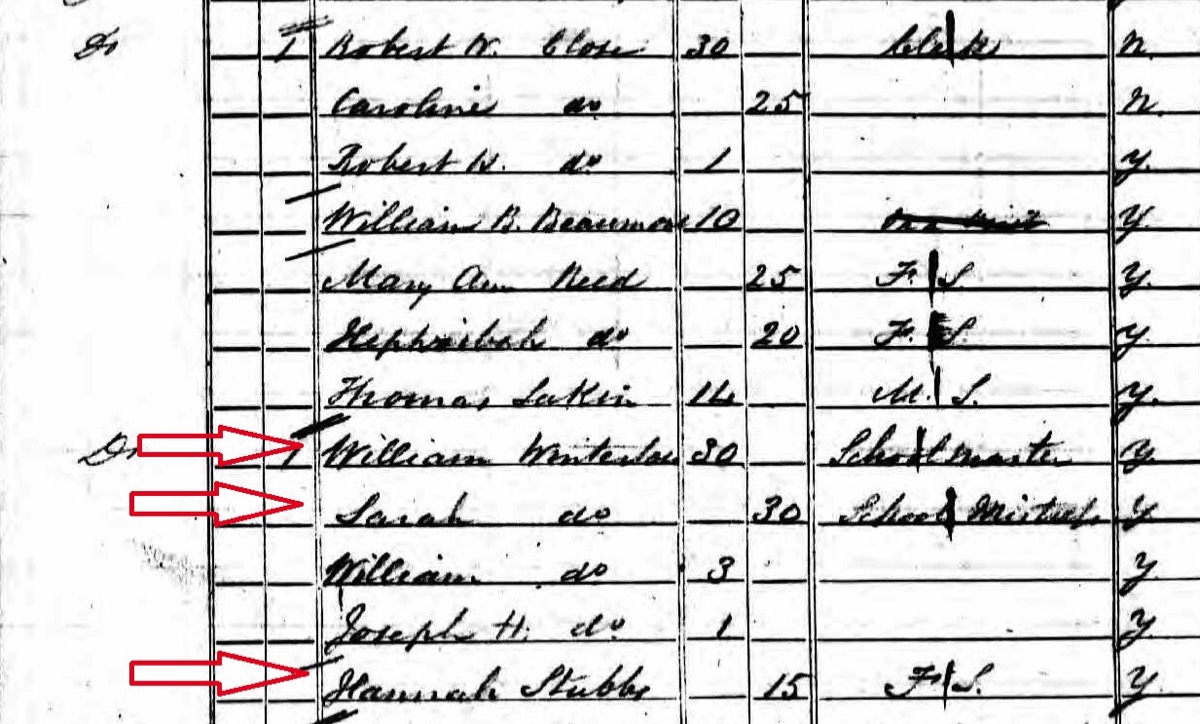 Do 1 Robert W. Close 30 Clerk N.
Caroline do 25 N.
Robert W. do 1 Y.
William B. 10 Y.
Mary Ann Reed 25 F. S. Y.
Hephzibah do 20 F. S. Y.
Thomas Lakin 14 M. S. Y.
Do 1 William 30 School master Y
Sarah do 30 School Mistress Y
William do 3 Y
Joseph H. do 1 Y.
Hannah Stubbs 15 F. S. Y